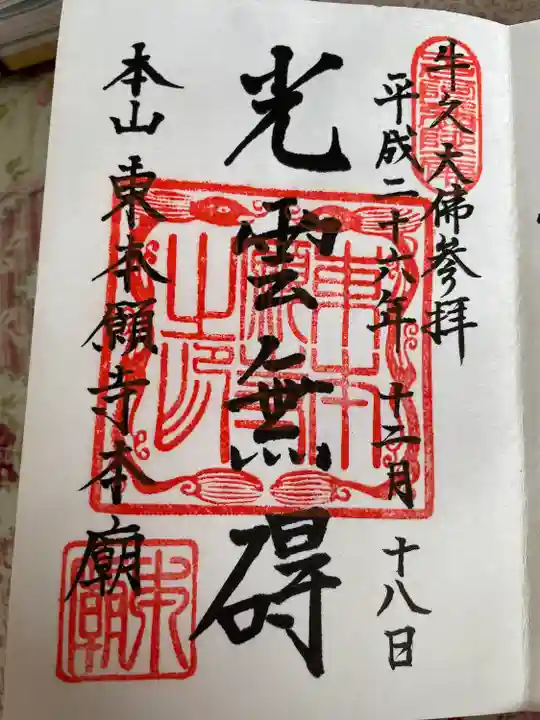 牛久大佛参拝
平成二十六年 十二月 十八日
光雲無碍
本山東本願寺本廟
東本願寺之印
本廟